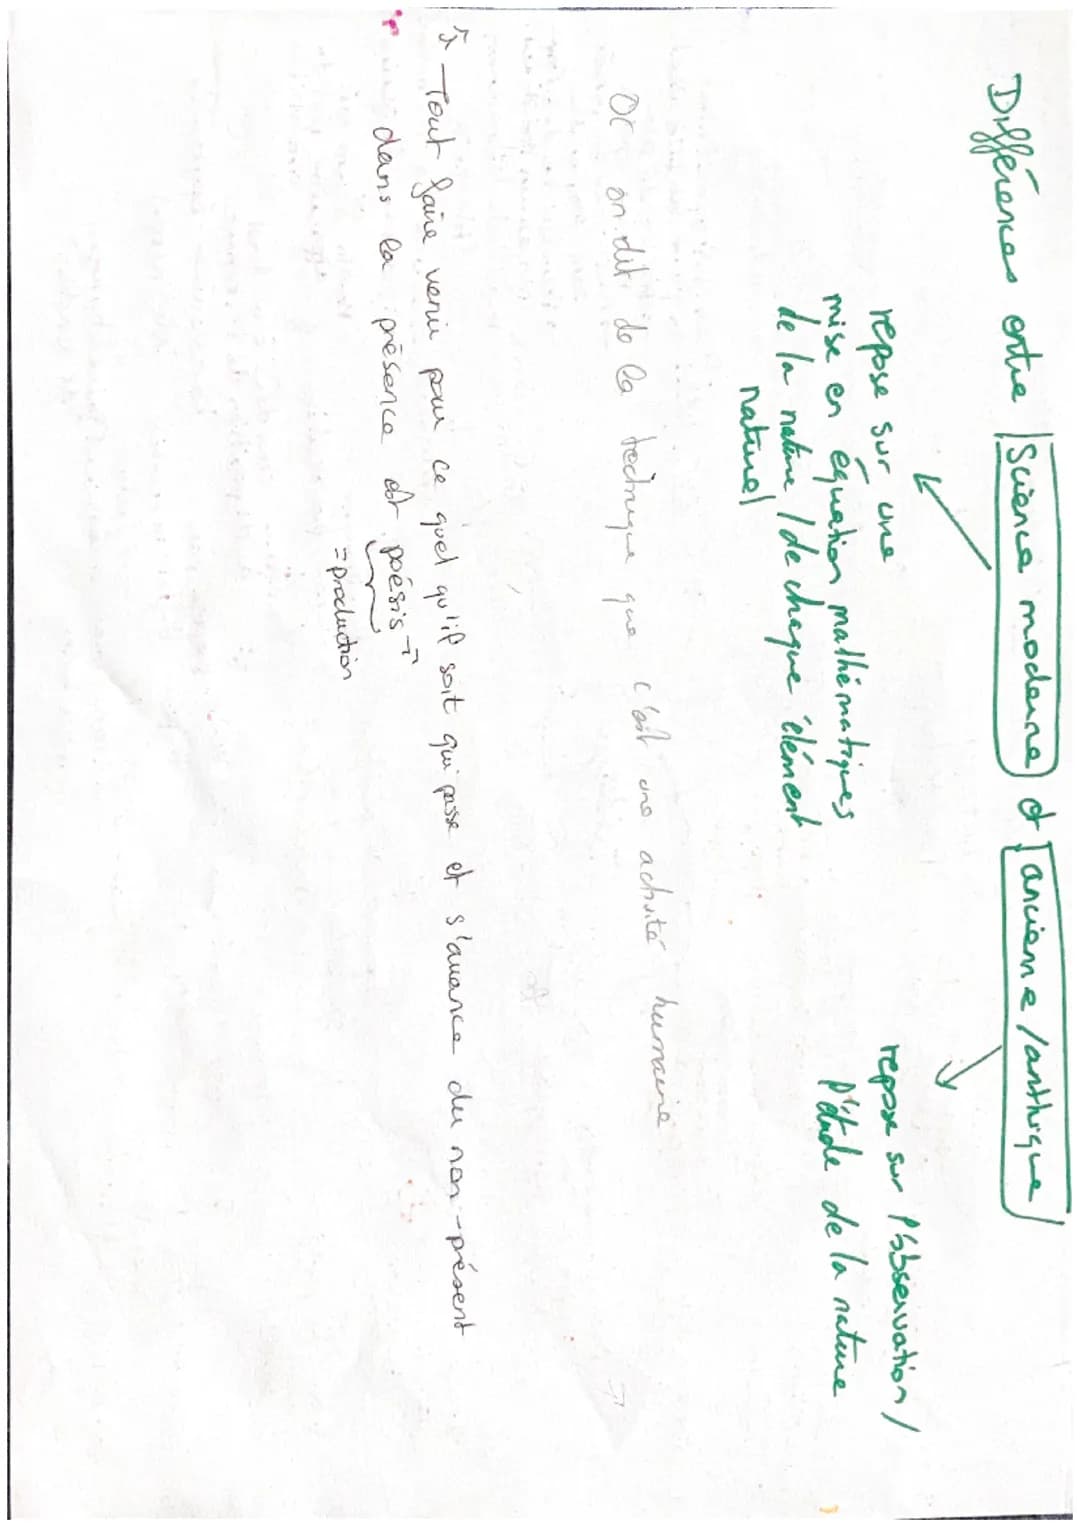 Différences entre Science moderne et ancienne / anthique
repose sur une
mise en équation mathématiques
de la nature / de chaque élément
naturel
repose sur l'observation /
l'étude de la nature
Or on dit de la technique que c'est une activité humaine
"Tout faire venir pour ce quel qu'il soit qui passe et s'avance du non-présent
dans la présence est poésis"
= production